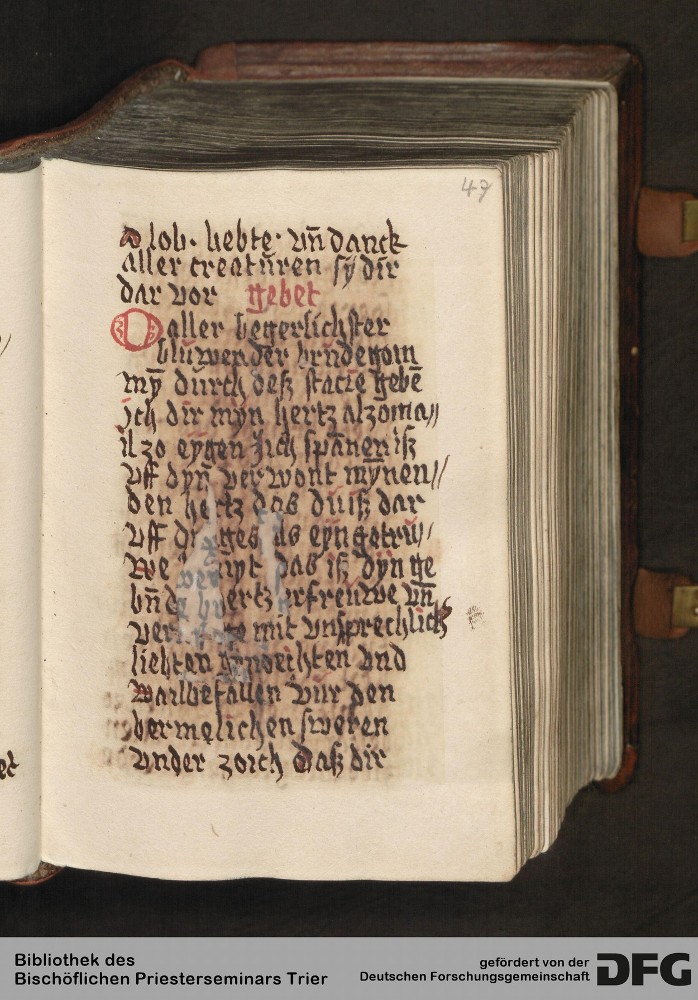 47
lob · liebte · vn̄ danck
aller creatūren sÿ dir
dar vor gebet
O aller begerlichster
der
mȳ dürch deß stacie gebē
ich dir myn hertz alzoma//
il zo eygen Jich spānen iß
vff dyn̄ ver wont mȳnen//
den hertz das duiß dar
vff als eyn getrū/
we das iß dyn ge
hertz erfreuwe vn̄
mit vnsprechlich
liebten vnd
wailbefallen vur den
sweren
vnder zoich daß dir
et
Bibliothek des
Bischöflichen Priesterseminars Trier
gefördert von der
Deutschen Forschungsgemeinschaft
DFG